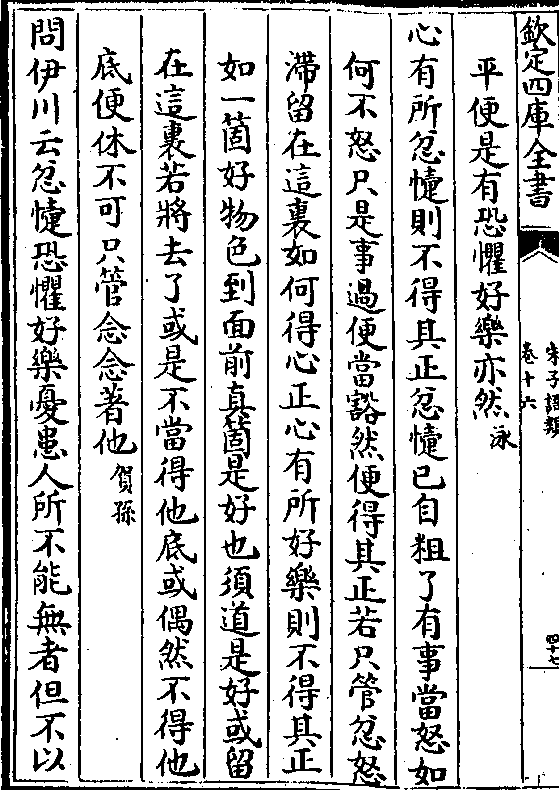 欽定四庫全書
朱子語類
卷十六
四十七
平便是有恐懼好樂亦然泳
心有所忿懥則不得其正忿懥已自粗了有事當怒如
何不怒只是事過便當豁然便得其正若只管忿怒
滯留在這裏如何得心正心有所好樂則不得其正
如一箇好物色到面前真箇是好也須道是好或留
在這裏若將去了或是不當得他底或偶然不得他
底便休不可只管念念著他賀孫
問伊川云忿懥恐懼好樂憂患人所不能無者但不以